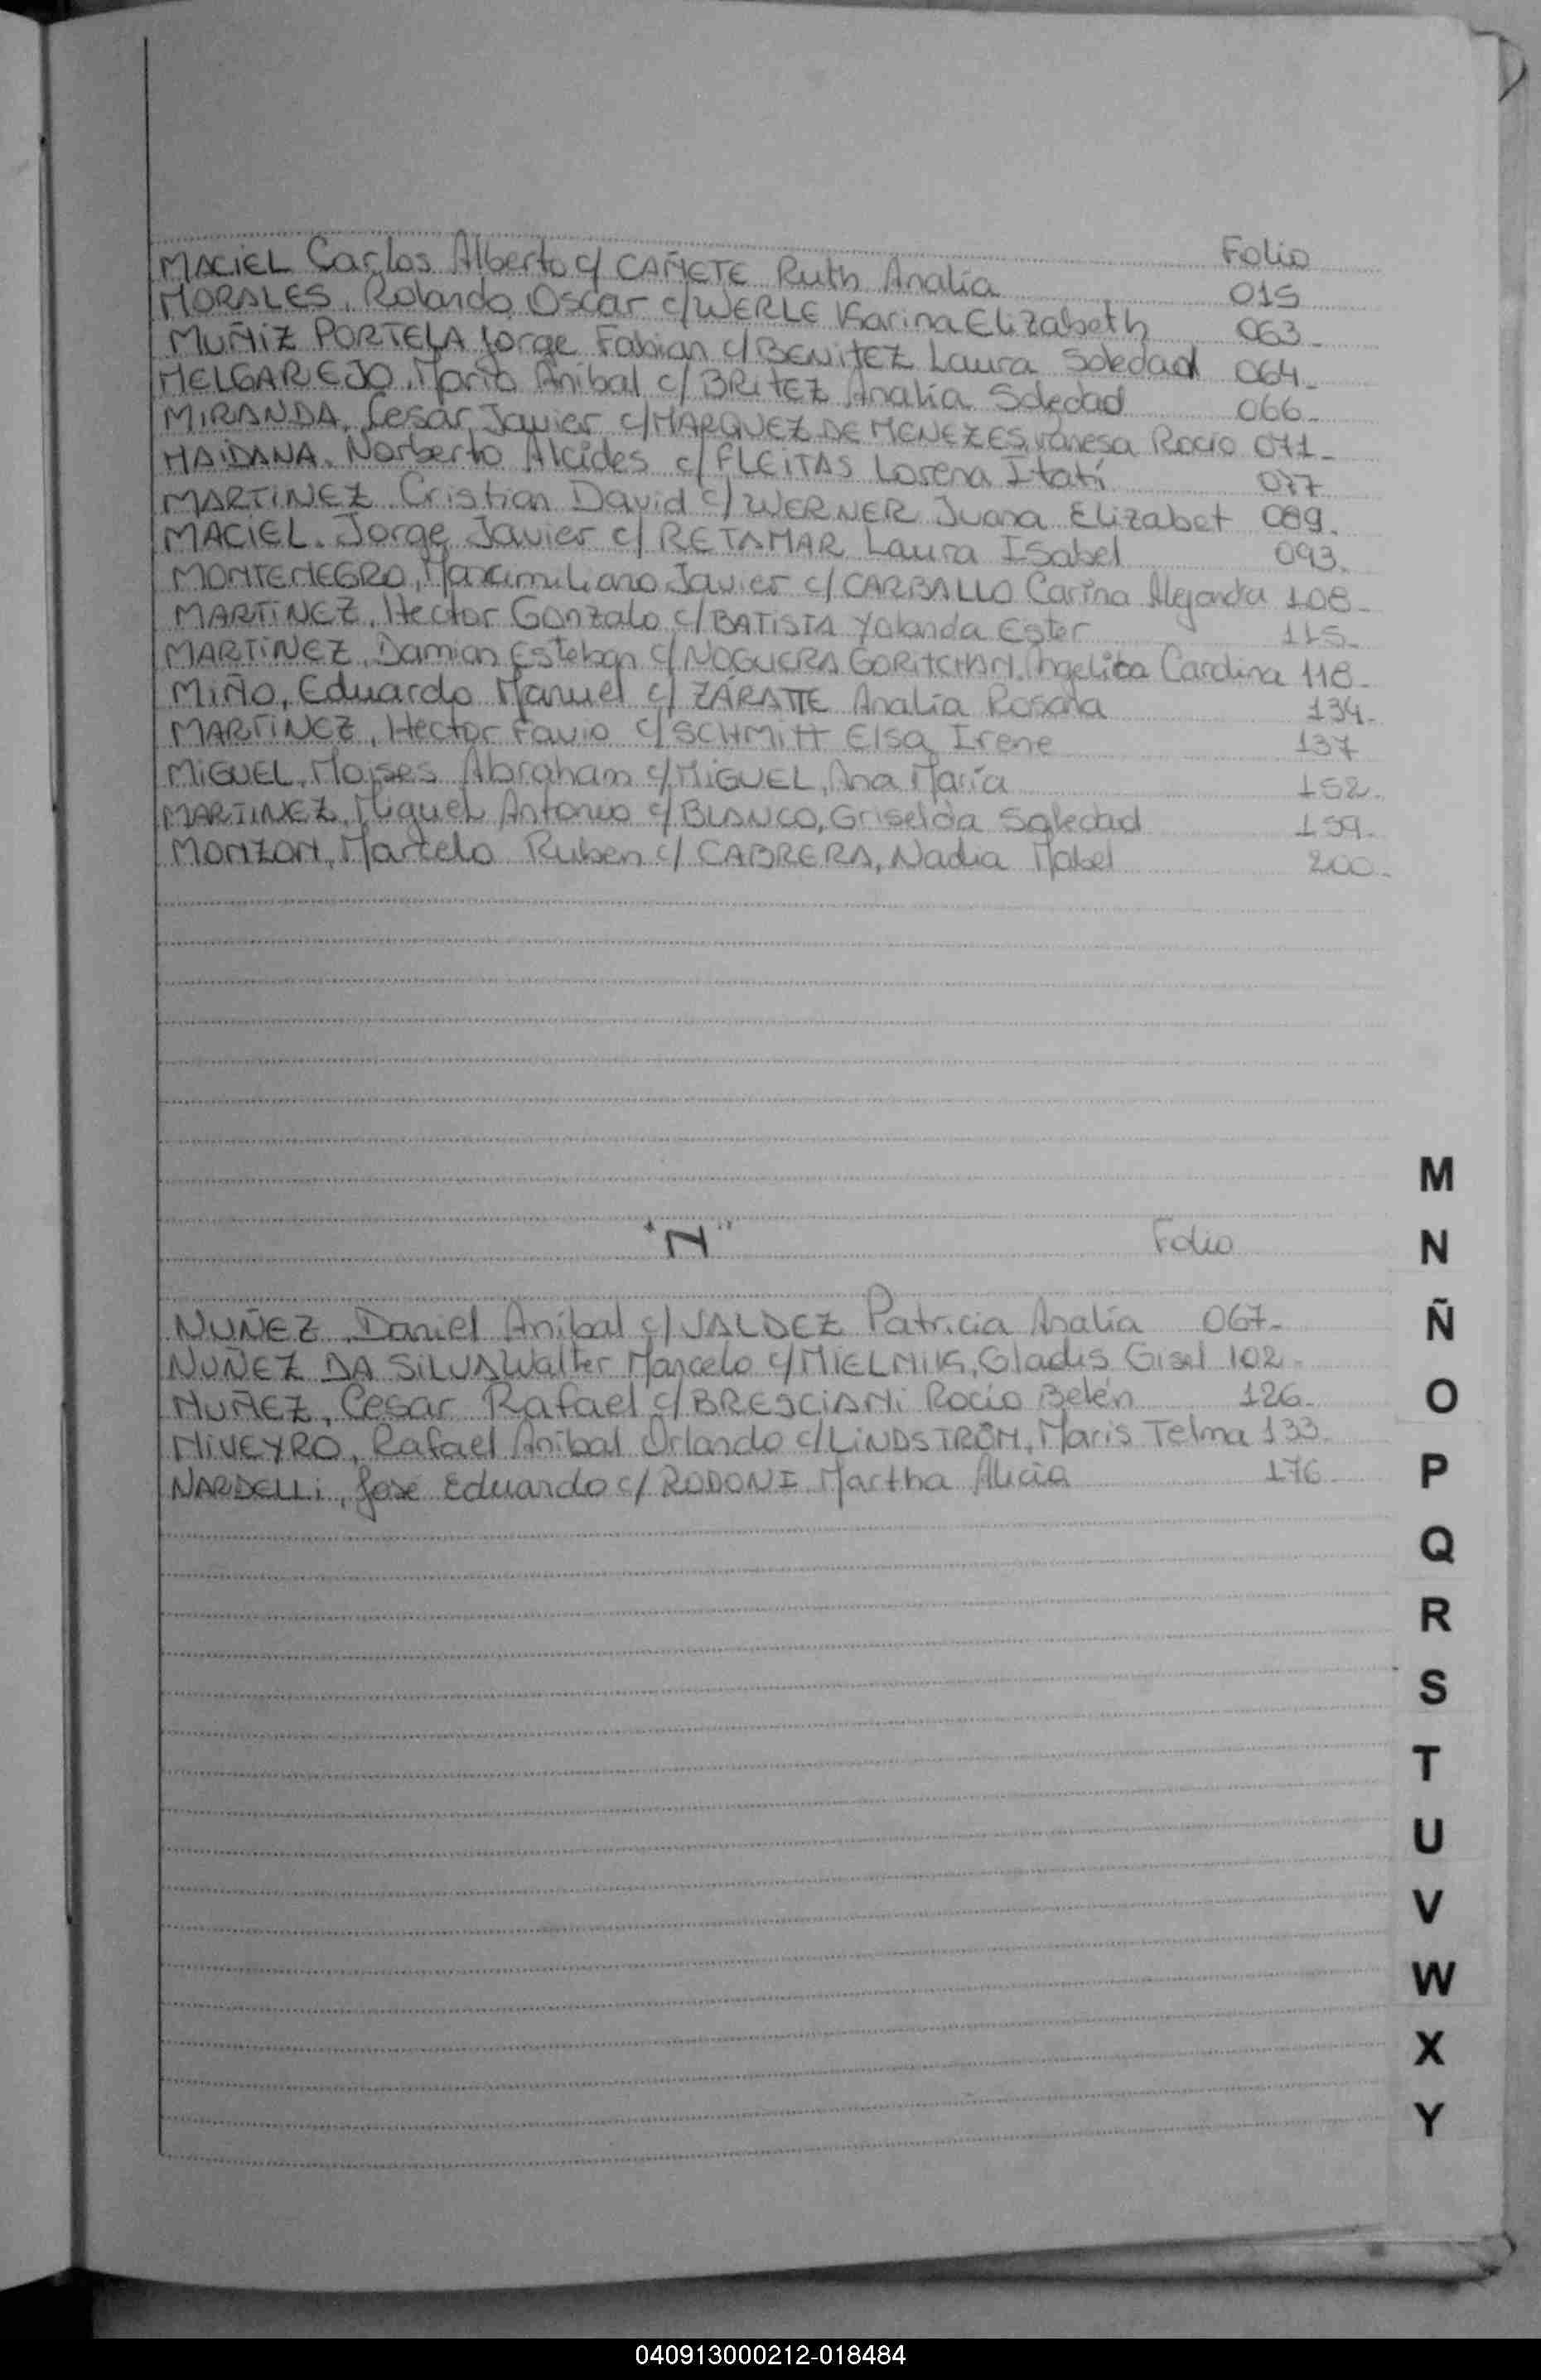 Folio
MACIEL Carlos Alberto c/ CAÑETE Ruth Analía 015
MORALES, Rolando Oscar c/WERLE Karina Elizabeth 063
MUÑIZ PORTELA Jorge Fabian c/BENITEZ Laura Soledad 064
MELGAREJO, Mario Anibal c/ BRITEZ Analía Soledad 066
MIRANDA, Cesar Javier c/MARQUEZ DE MENEZES, Vanesa Rocio 071
MAIDANA, Norberto Alcides c/ FLEITAS Lorena Itatí 077
MARTINEZ Cristian David c/ WERNER Juana Elizabet 089
MACIEL, Jorge Javier c/ RETAMAR Laura Isabel 093
MONTENEGRO, Maximiliano Javier c/ CARBALLO Carina Alejandra 108
MARTINEZ, Hector Gonzalo c/BATISTA Yolanda Ester 115
MARTINEZ, Damian Esteban c/NOGUERA Angelica Carolina 118
MIÑO, Eduardo Manuel c/ ZÁRATTE Analia Rosana 134
MARTINEZ, Hector Favio c/SCHMITT Elsa Irene 137
MIGUEL, Moises Abraham c/MIGUEL, Ana María 152
MARTINEZ, Miguel Antonio c/BLANCO, Griselda Soledad 159
MONZON, Marcelo Ruben c/ CABRERA, Nadia Mabel 200
"N" Folio
NUÑEZ, Daniel Anibal c/VALDEZ Patricia Analía 067
NUÑEZ DA SILVA Walter Marcelo c/MIELNIK, Gladis Gisel 102
NUÑEZ, Cesar Rafael c/BRESCIANI Rocío Belén 126
NIVEYRO, Rafael Anibal Orlando c/LINDSTRÖM, Maris Telma 133
NARDELLI, Jose Eduardo c/ RODONI Martha Alicia 176
M
N
Ñ
O
P
Q
R
S
T
U
V
W
X
Y
040913000212-018484